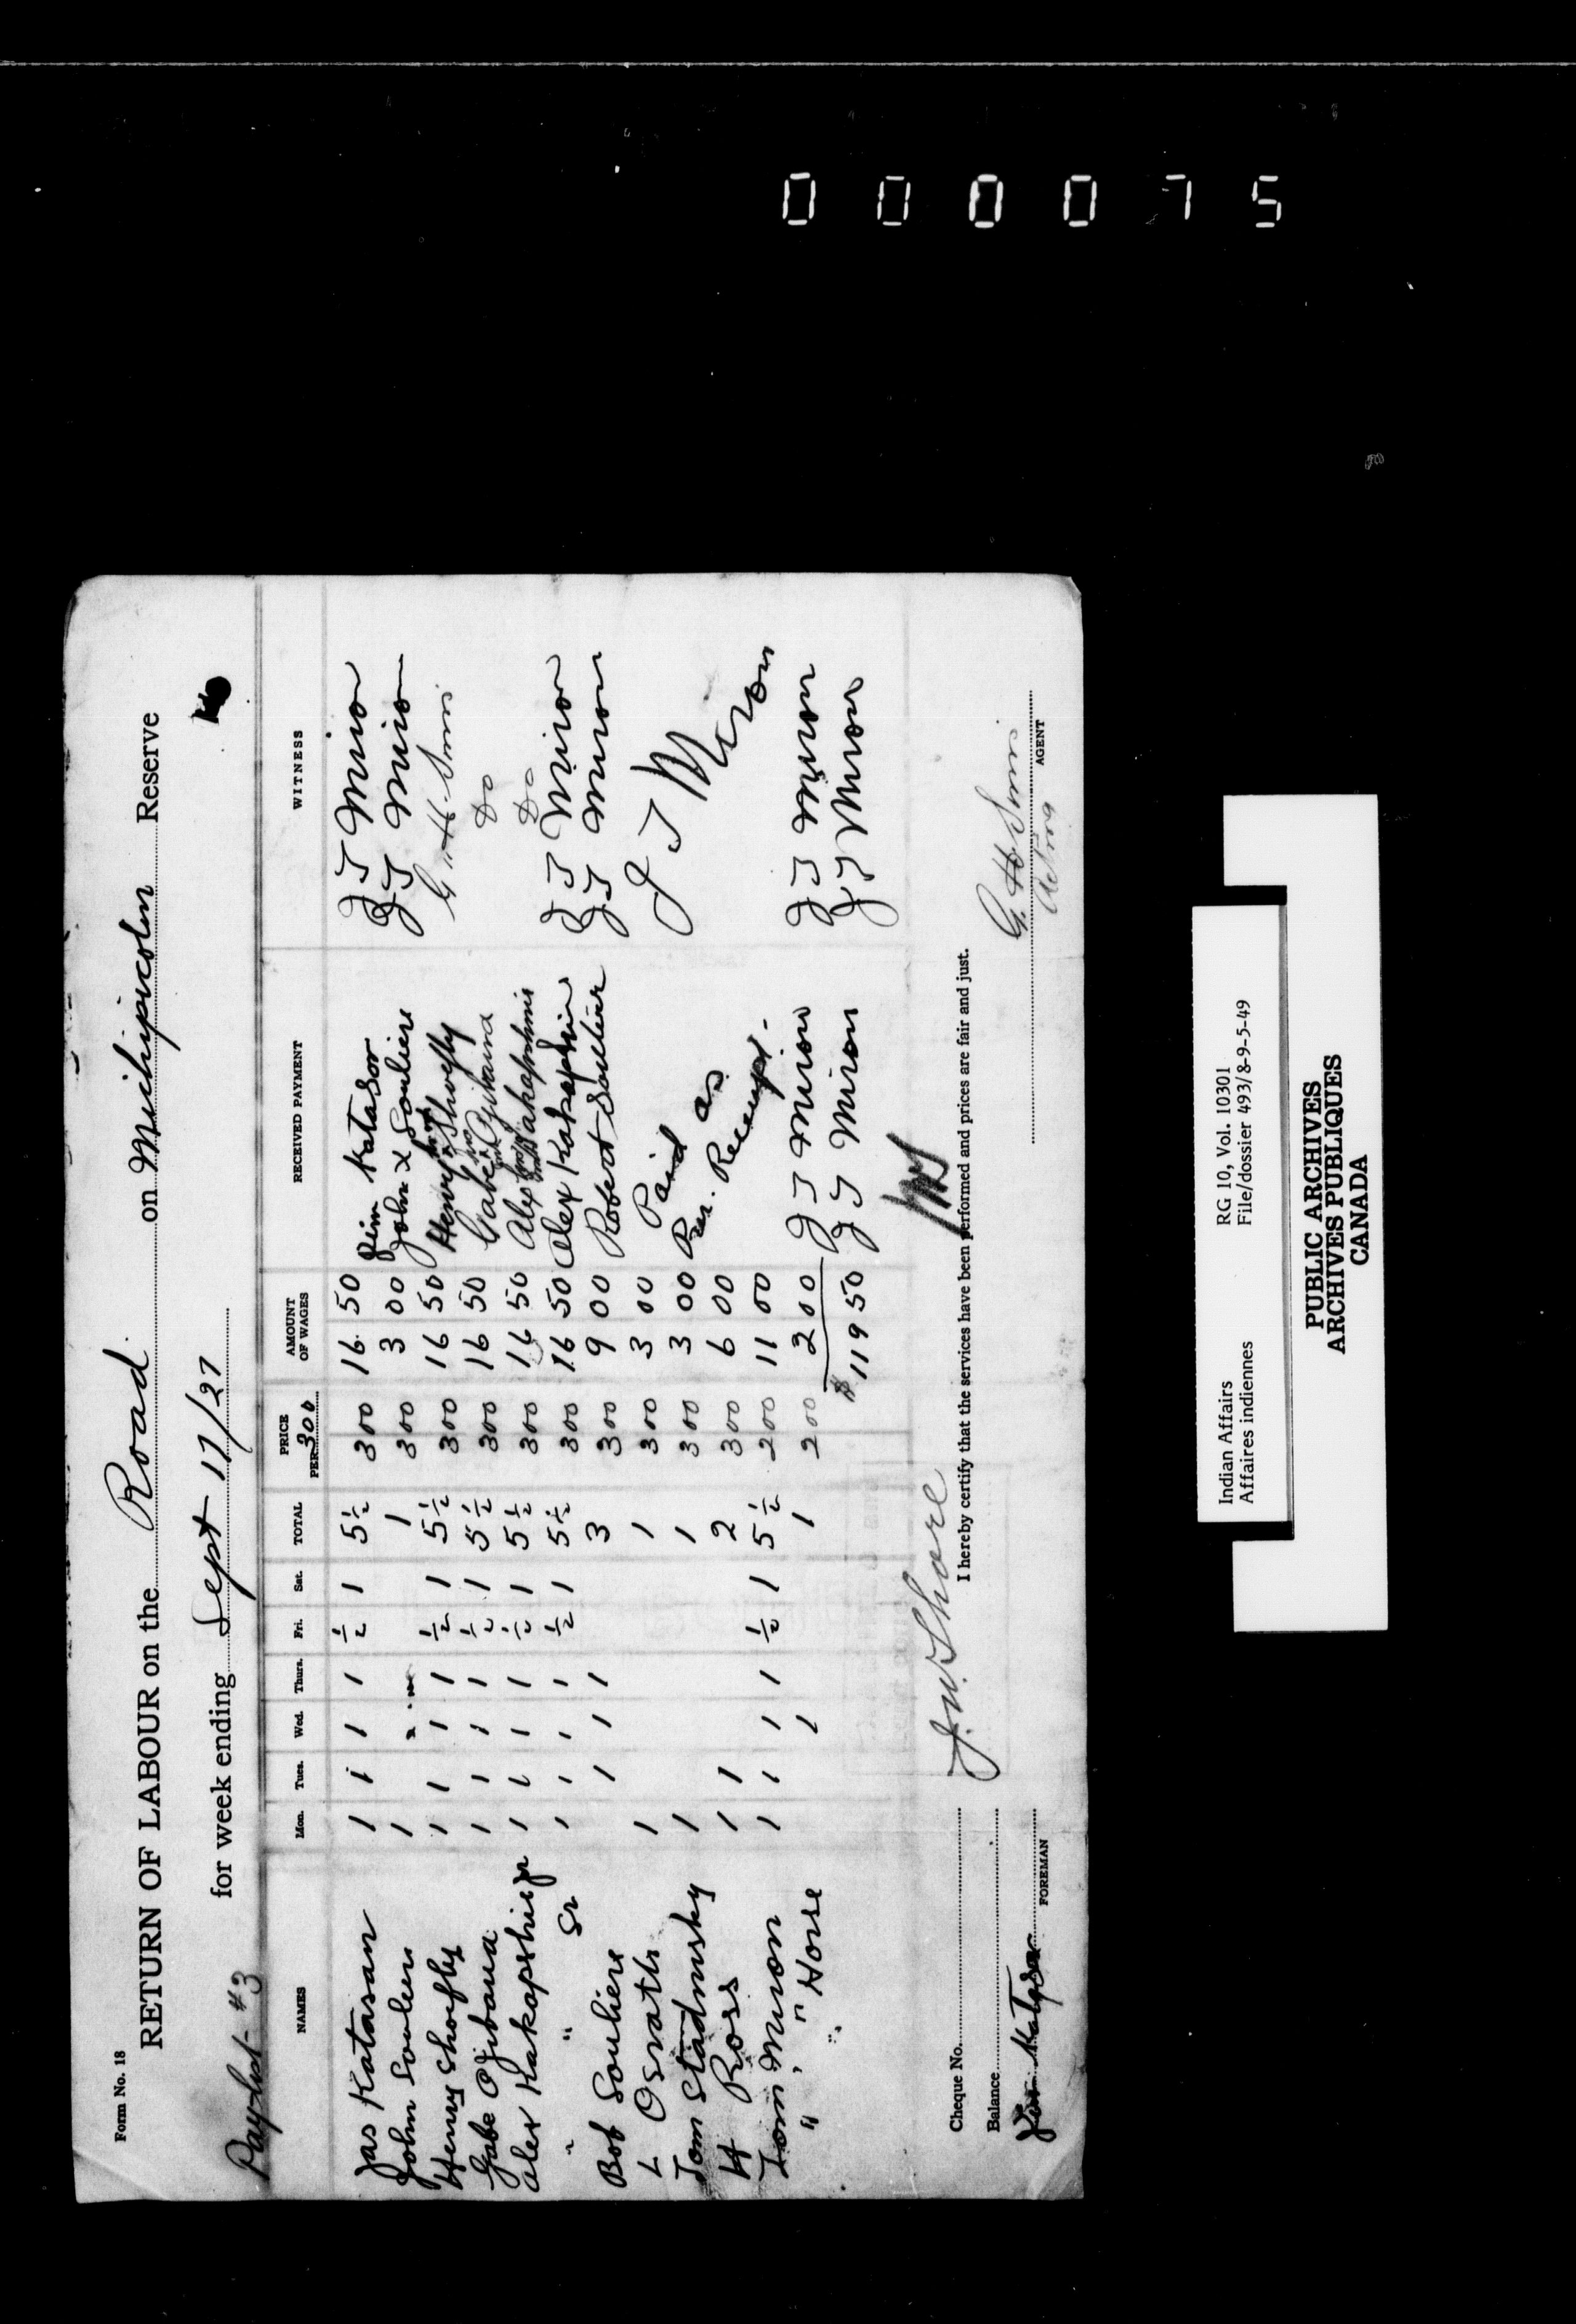 000075
Form No. 18
RETURN OF LABOUR on the Road on Michipicoten Reserve
Paylist #3 for week ending Sept 17/27
NAMES Mon. Tues. Wed. Thurs. Fri. Sat. TOTAL PRICE PER 300 AMOUNT OF WAGES RECEIVED PAYMENT WITNESS
Jas Katasan 1 1 1 1 ½ 1 5½ 3 00 16 50 Jim Katason J T Miron
John Soulier 1 1 3 00 3 00 John X Souliere J T Miron
Henry Shoofly 1 1 1 1 ½ 1 5½ 3 00 16 50 Henry X Shoofly G. H. Sims
Gabe Ojibawa 1 1 1 1 ½ 1 5½ 3 00 16 50 Gabe X Do
Alex Kakapshie jr 1 1 1 1 ½ 1 5½ 3 00 16 50 Alex Do
" " Sr 1 1 1 1 ½ 1 5½ 3 00 16 50 Alex J T Miron
Bob Souliere 1 1 1 3 3 00 9 00 Robert Soulier J T Miron
L 1 1 3 00 3 00 Paid as
Tom Stadnisky 1 1 3 00 3 00 Per. Receipt. J T Miron
H Ross 1 1 2 3 00 6 00
Tom Miron 1 1 1 1 ½ 1 5½ 2 00 11 00 J T Miron J T Miron
" " Horse 1 1 2 00 2 00 J T Miron J T Miron
$ 119 50
J.W. Shore
I hereby certify that the services have been performed and prices are fair and just.
Cheque No.
Balance
Jim Katason FOREMAN
G. H. Sims
Acting AGENT
Indian Affairs RG 10, Vol. 10301
Affaires indiennes File/dossier 493/8-9-5-49
PUBLIC ARCHIVES
ARCHIVES PUBLIQUES
CANADA